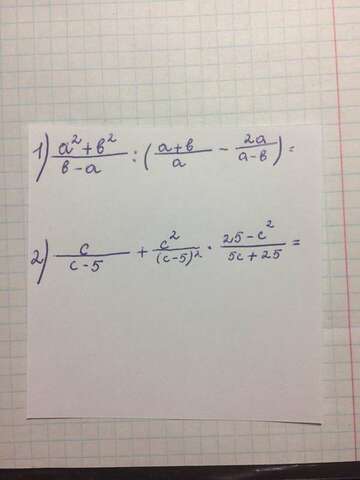 1) \frac{a^2+b^2}{b-a} : (\frac{a+b}{a} - \frac{2a}{a-b}) =
2) \frac{c}{c-5} + \frac{c^2}{(c-5)^2} \cdot \frac{25-c^2}{5c+25} =